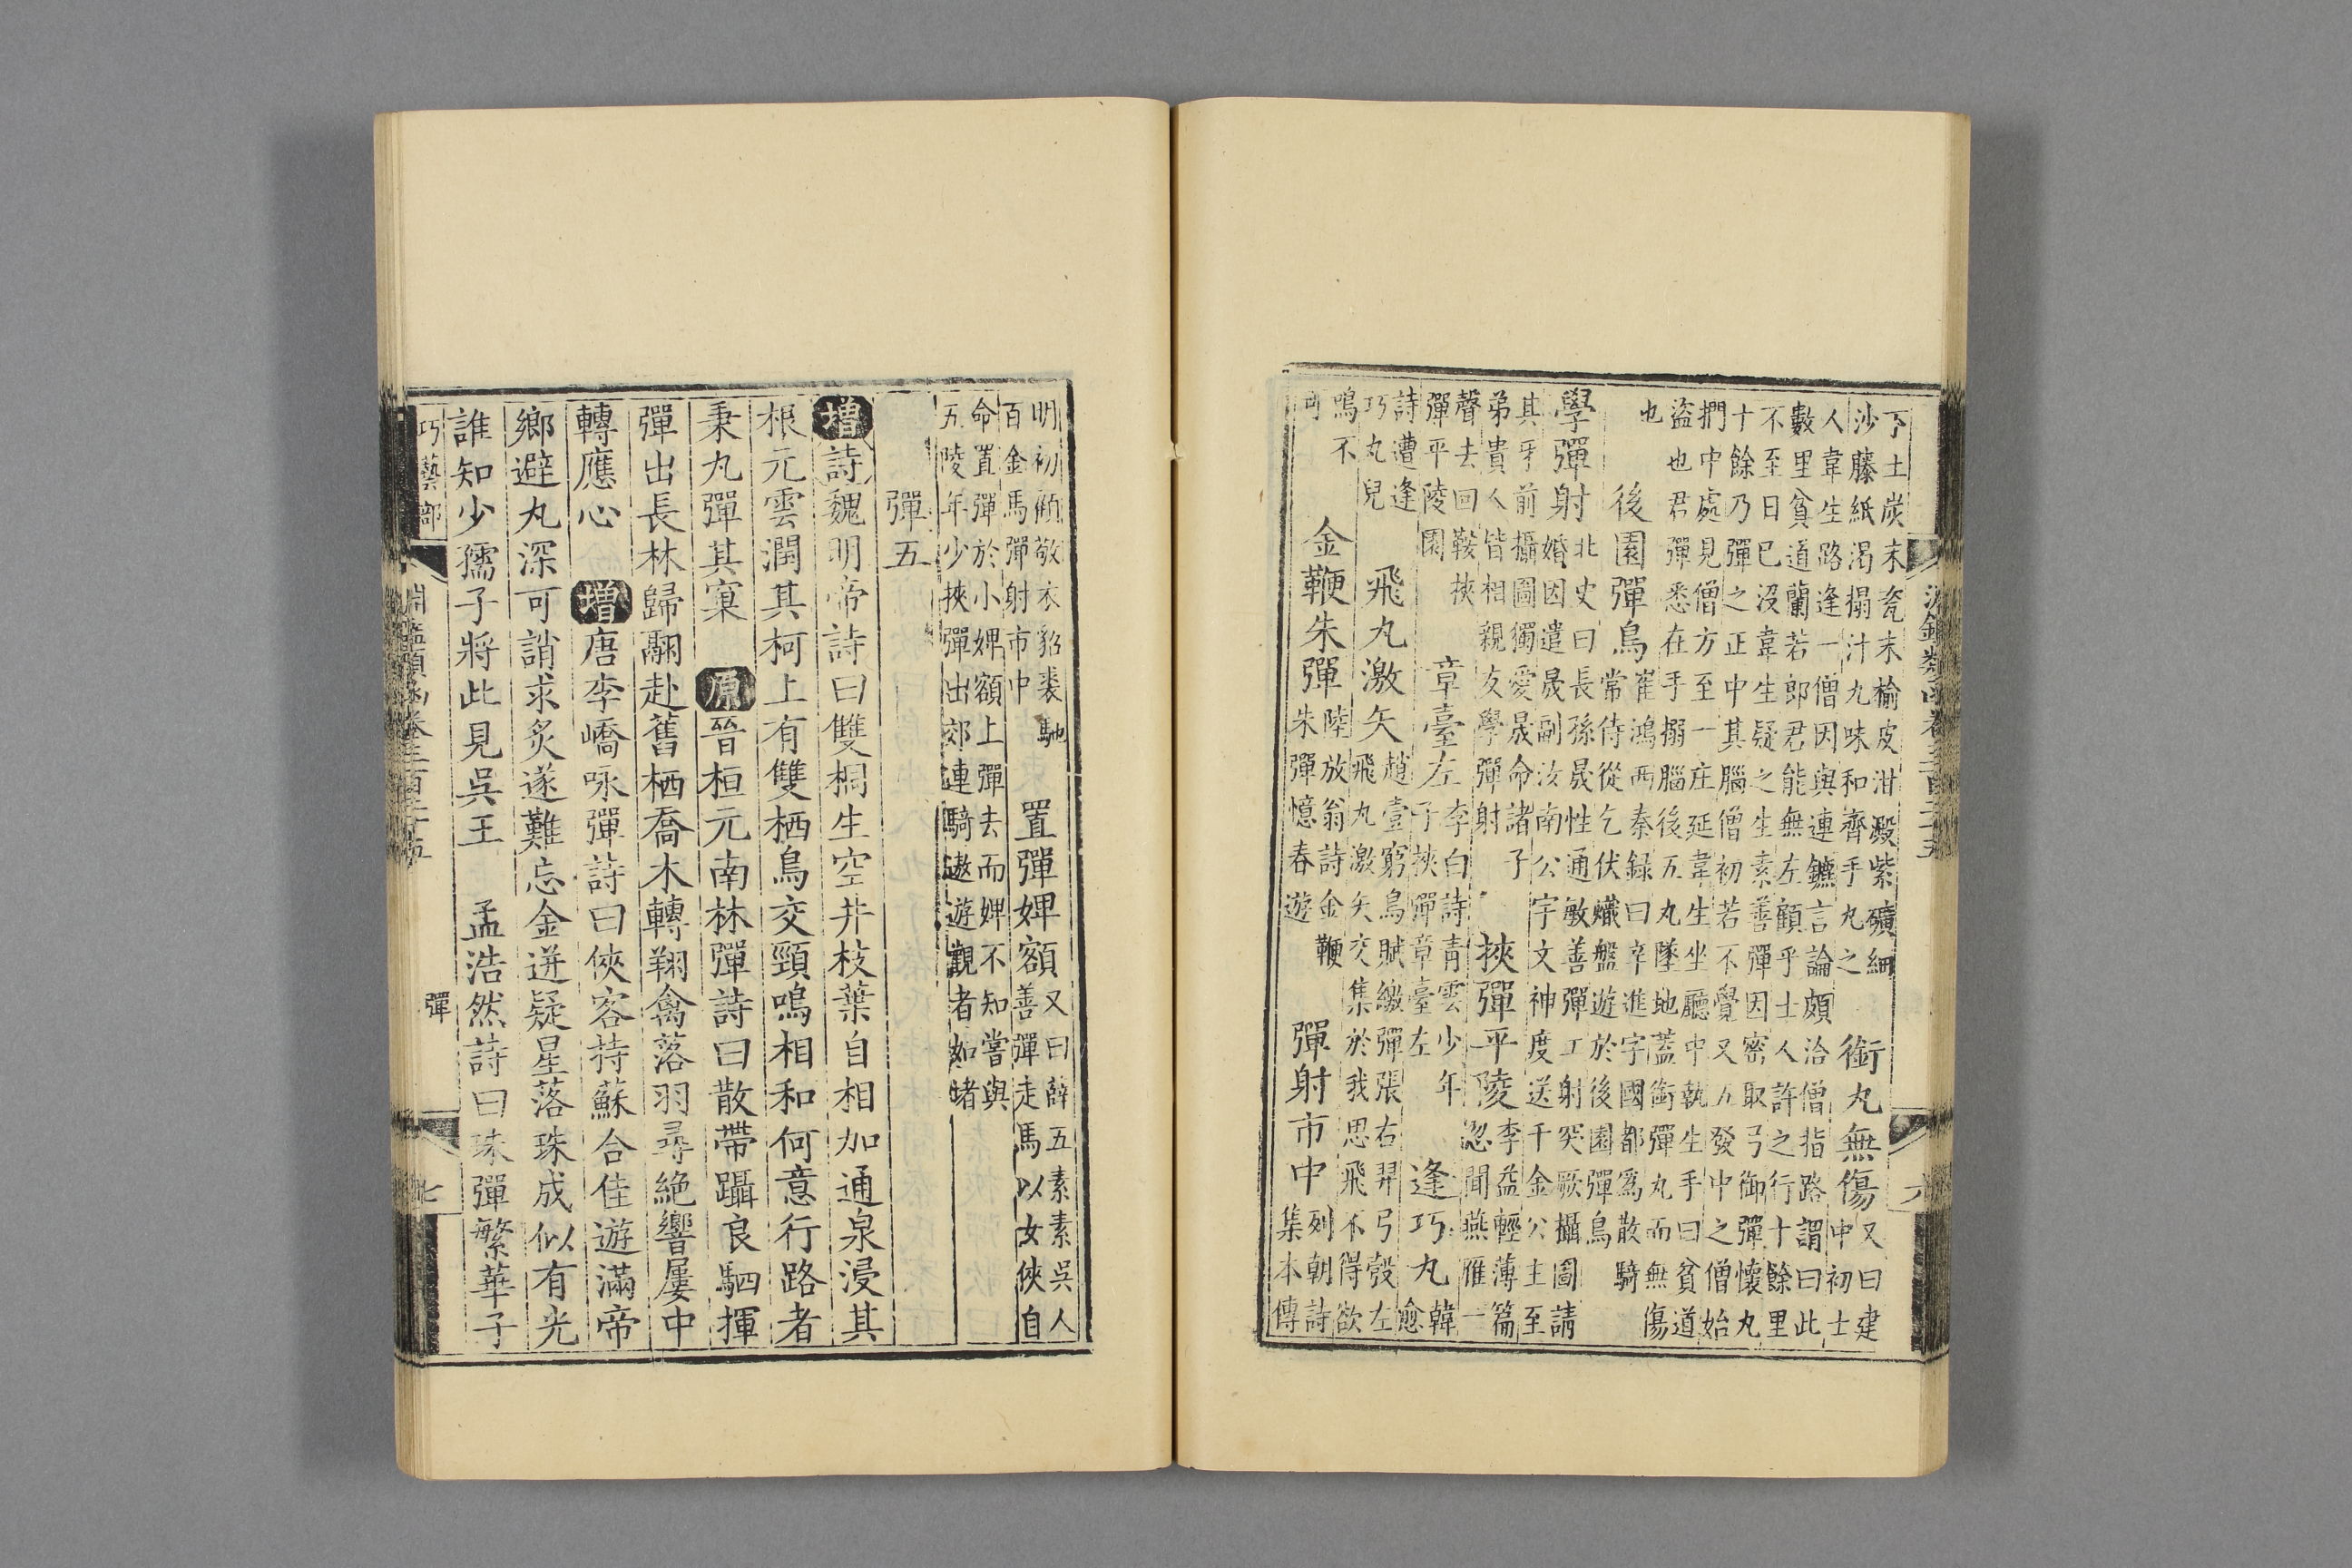 下土炭末瓷末榆皮泔澱紫礦細
沙藤紙渴搨汁九味和齊手丸之
銜丸無傷
又曰建
中初士
人韋生路逢一僧因與連鑣言論頗洽僧指路謂曰此
數里貧道蘭若郎君能無左顧乎士人許之行十餘里
不至日已沒韋生疑之生素善彈因密取弓御彈懷丸
十餘乃彈之正中其腦僧初若不覺又五發中之僧始
捫中處見僧方至一庄延韋生坐廳中執生手曰貧道
盜也君彈悉在手搦腦後五丸墜地蓋銜彈丸而無傷
也
後園彈鳥
崔鴻西秦録曰辛進字國都為散騎
常侍從乞伏熾盤遊於後園彈鳥
學彈射
北史曰長孫晟性通敏善彈工射突厥攝圖請
婚因遣晟副汝南公宇文神度送千金公主至
其牙前攝圖獨愛晟命諸子
弟貴人皆相親友學彈射
挾彈平陵
李益輕薄篇
忽聞燕雁一
聲去回鞍挾
彈平陵園
章臺左
李白詩青雲少年
子挾彈章臺左
逢巧丸
韓
愈
詩遭逢
巧丸兒
飛丸激矢
趙壹窮鳥賦繳彈張右羿弓彀左
飛丸激矢交集於我思飛不得欲
鳴不
可
金鞭朱彈
陸放翁詩金鞭
朱彈憶春遊
彈射市中
列朝詩
集本傳
明初顧敬衣貂裘馳
百金馬彈射市中
置彈婢額
又曰薛五素素吳人
善彈走馬以女俠自
命置彈於小婢額上彈去而婢不知嘗與
五陵年少挾彈出郊連騎遨遊觀者如堵
彈五
增詩魏明帝詩曰雙桐生空井枝葉自相加通泉浸其
根元雲潤其柯上有雙栖鳥交頸鳴相和何意行路者
秉丸彈其窠 原晉桓元南林彈詩曰散帶躡良駟揮
彈出長林歸翮赴舊栖喬木轉翔禽落羽尋絶響屢中
轉應心 增唐李嶠咏彈詩曰俠客持蘇合佳遊滿帝
鄉避丸深可誚求炙遂難忘金迸疑星落珠成似有光
誰知少孺子將此見吳王 孟浩然詩曰珠彈繁華子
巧藝部
淵鑑類函卷三百二十五
彈
七